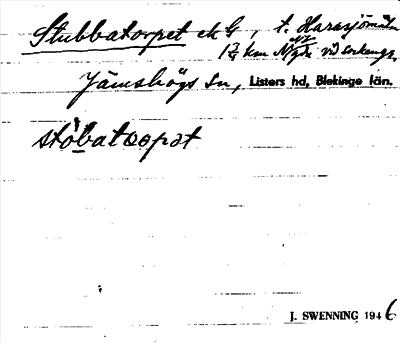 Stubbatorpet ek G, t. Harasjömåla
1 3/4 km NV
Jämshögs sn, Listers hd, Blekinge län.
stòbatorpat
J. SWENNING 1946